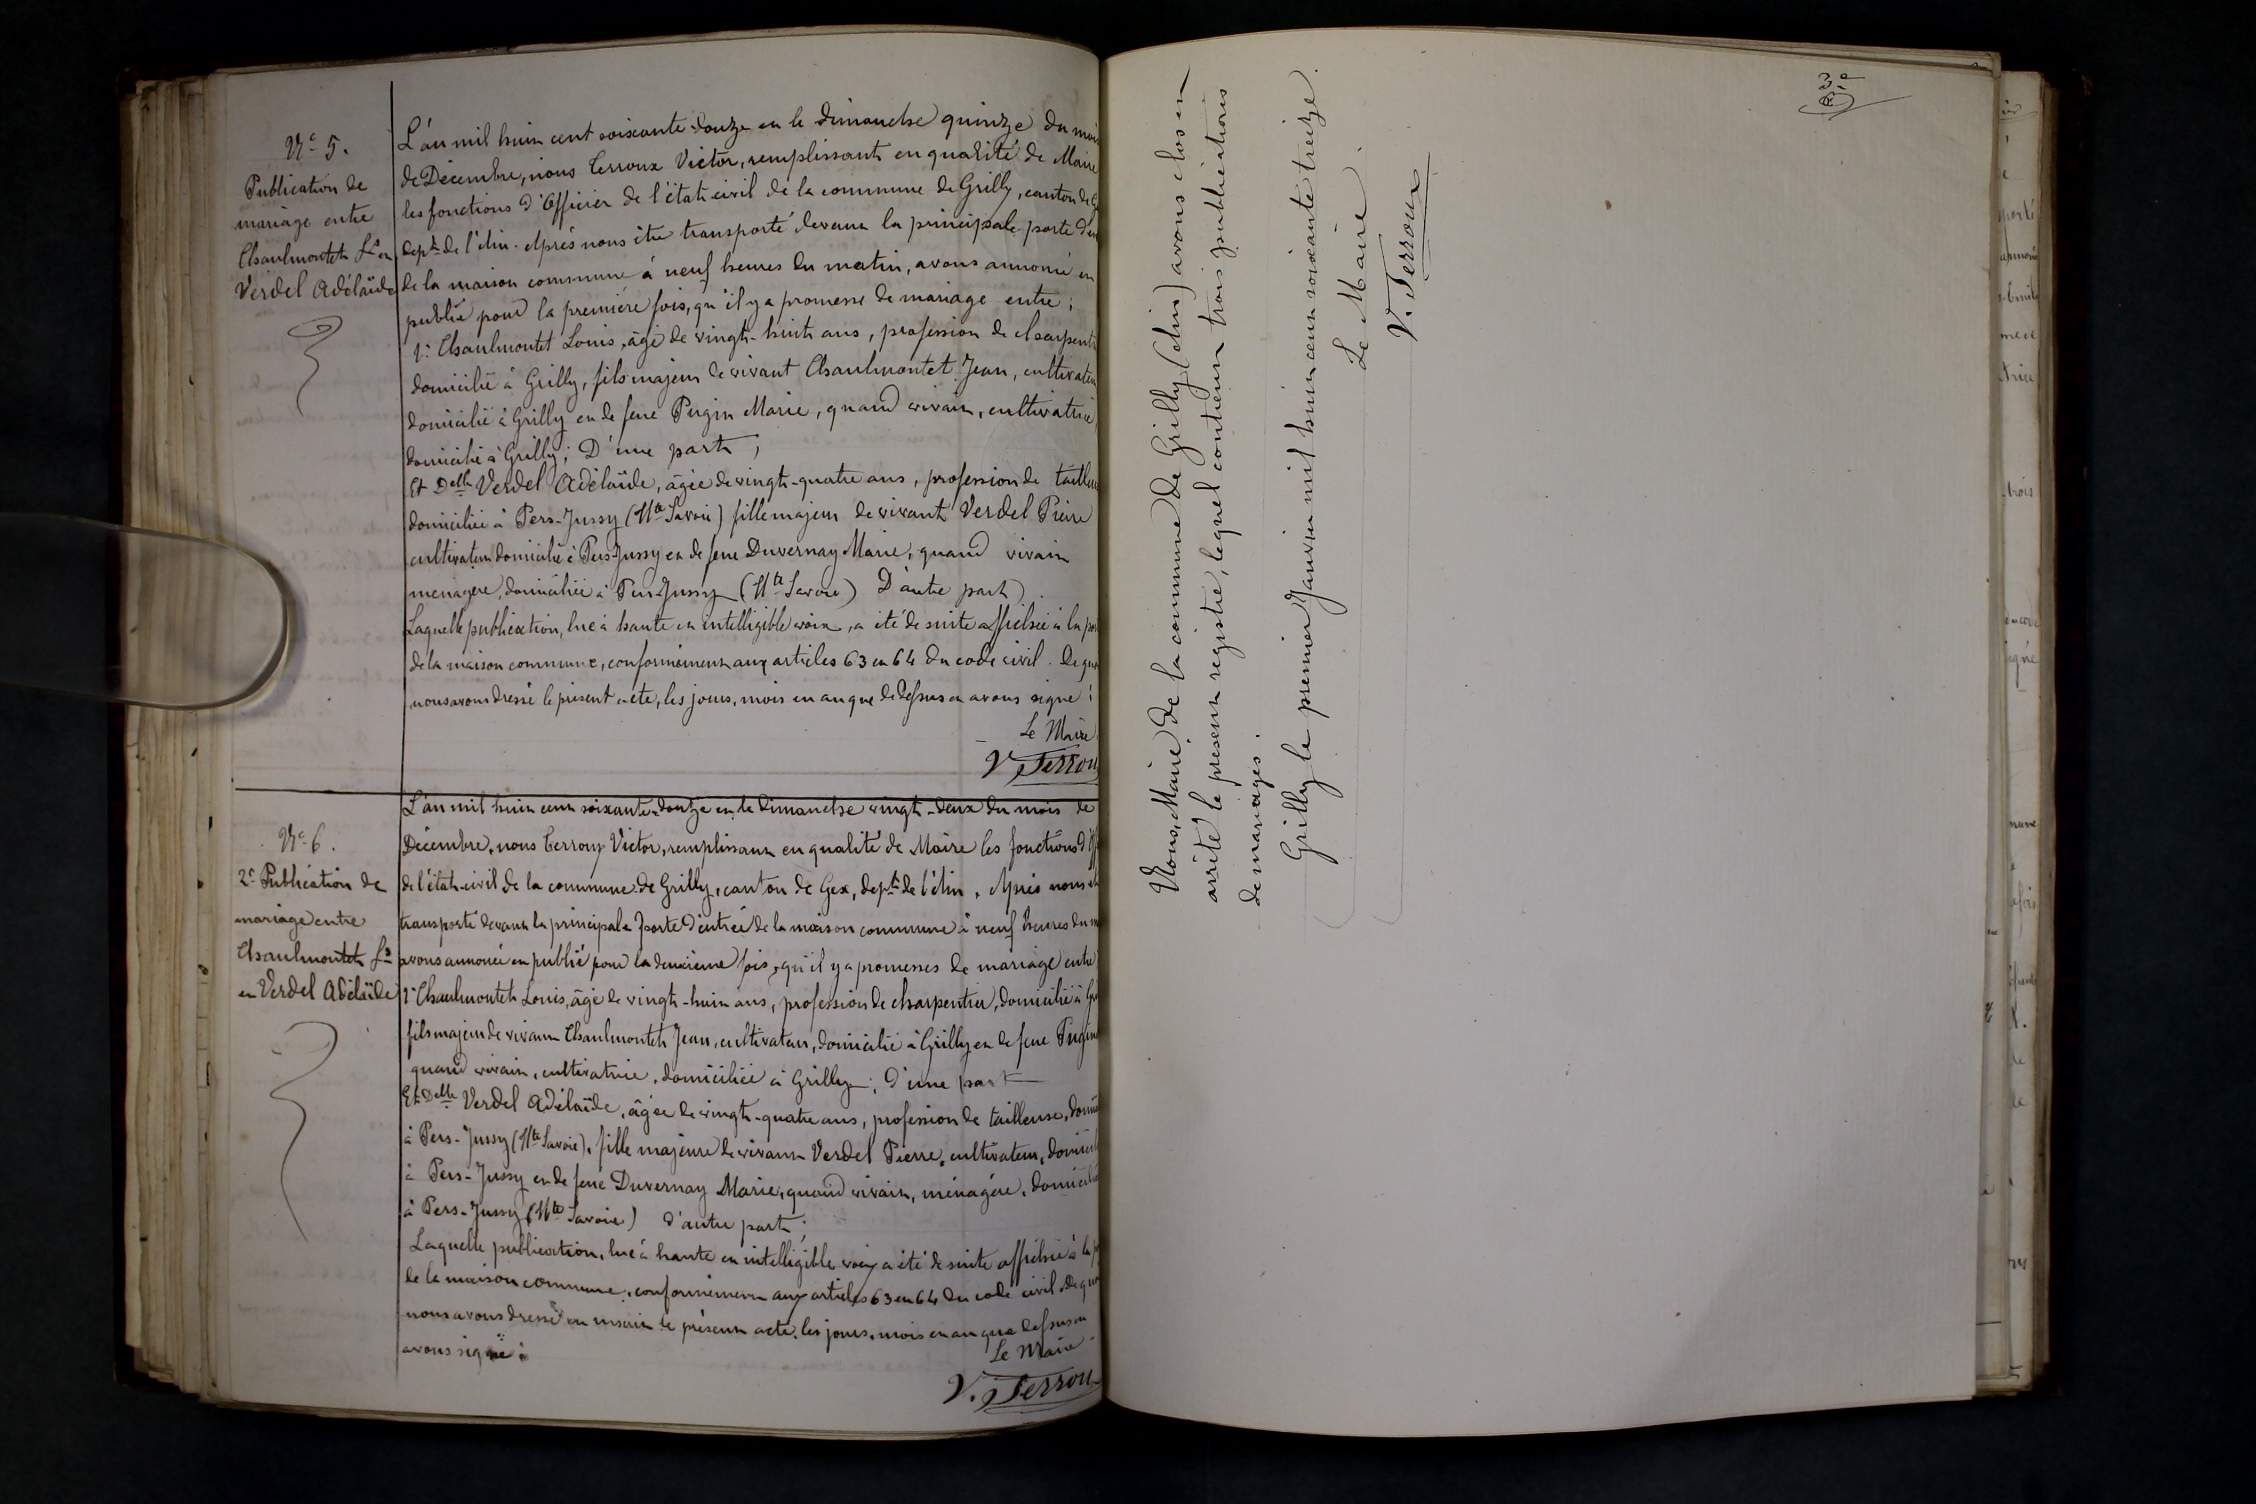 N° 5.
Publication de
mariage entre
Chaulmontet Ls et
Verdel Adélaïde
L'an mil huit cent soixante-douze et le dimanche quinze du mois
de Décembre, nous Terroux Victor, remplissant en qualité de Maire
les fonctions d'Officier de l'état-civil de la commune de Grilly, canton de
dept de l'Ain. Après nous être transporté devant la principale porte
de la maison commune à neuf heures du matin, avons annoncé et
publié pour la première fois, qu'il y a promesse de mariage entre ;
1° Chaulmontet Louis, âgé de vingt-huit ans, profession de charpent
domicilié à Grilly, fils majeur de vivant Chaulmontet Jean, cultivateur
domicilié à Grilly et de feue Pugin Marie, quand vivait, cultivatrice,
domicilié à Grilly ; D'une part ;
Et Delle Verdel Adélaïde, âgée de vingt-quatre ans, profession de tailleu
domiciliée à Pers-Jussy (Hte Savoie) fille majeur de vivant Verdel Pierre
cultivateur domicilié à Pers-Jussy et de feue Duvernay Marie, quand vivait
menagère, domiciliée à Pers-Jussy (Hte Savoie) D'autre part
Laquelle publication, lue à haute et intelligible voix, a été de suite affichée à la por
de la maison commune, conformément aux articles 63 et 64 du code civil. De quoi
nous avons dressé le présent acte, les jours, mois et an que dessus et avons signé :
Le Maire
V. Terrou
N° 6.
2e Publication de
mariage entre
Chaulmontet Ls
et Verdel Adélaïde
L'an mil huit cent soixante-douze et le Dimanche vingt-deux du mois de
Décembre, nous Terroux Victor, remplissant en qualité de Maire les fonctions d'Off
de l'état-civil de la commune de Grilly, canton de Gex, dept de l'Ain. Après nous
transporté devant la principale porte d'entrée de la maison commune à neuf heures du m
avons annoncé et publié pour la deuxième fois, qu'il y a promesses de mariage entre
1° Chaulmontet Louis, âgé de vingt-huit ans, profession de charpentier, domicilié à Gri
fils majeur de vivant Chaulmontet Jean, cultivateur, domicilié à Grilly et de feue Pugin
quand vivait, cultivatrice, domiciliée à Grilly ; d'une part
Et Delle Verdel Adélaïde, âgée de vingt-quatre ans, profession de tailleuse, domici
à Pers-Jussy (Hte Savoie), fille majeure de vivant Verdel Pierre, cultivateur, domicil
à Pers-Jussy et de feue Duvernay Marie, quand vivait, ménagère, domicilié
à Pers-Jussy (Hte Savoie) d'autre part ;
Laquelle publication, lue à haute et intelligible voix a été de suite affichée à la p
de la maison commune, conformément aux articles 63 et 64 du code civil. De quoi
nous avons dressé et inscrit le présent acte, les jours, mois et an que dessus et
avons signé :
Le Maire
V. Terrou
3e
Nous, Maire de la commune de Grilly (Ain) avons clos et
arrêté le présent registre, lequel contient trois publications
de mariages.
Grilly le premier Janvier mil huit cent soixante treize.
Le Maire.
V. Terroux